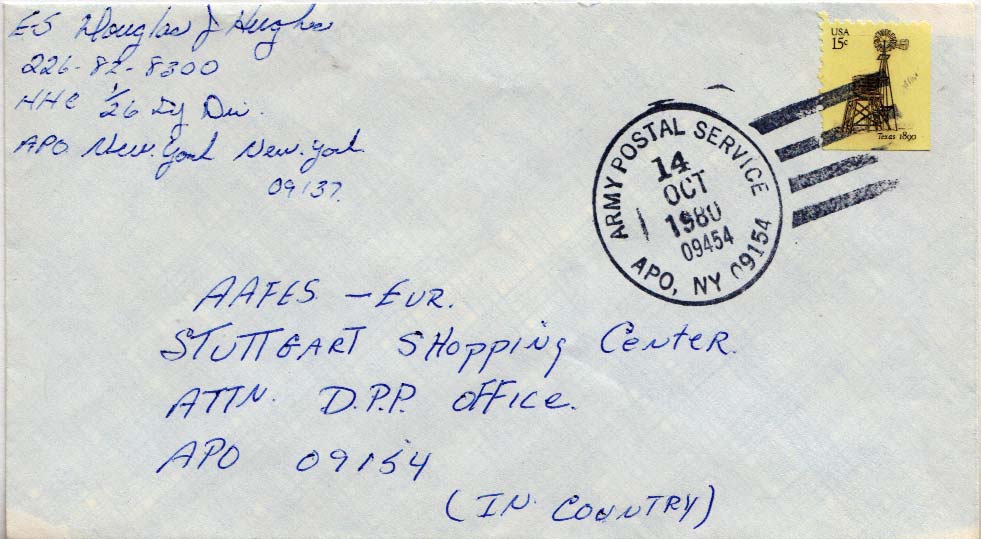 E5 Douglas J Hughes
226-82-8300
HHC 1/26 Iy Div.
APO New York New York
09137
USA
15c
Texas 1890
ARMY POSTAL SERVICE
14
OCT
1980
09454
APO, NY 09154
AAFES - EUR.
STUTTGART SHOPPING CENTER.
ATTN. D.P.P. OFFICE.
APO 09154
(IN COUNTRY)